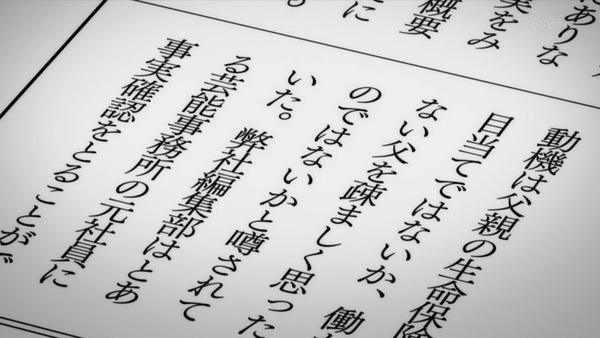 ありな
実をみ
概要
に
。
動機は父親の生命保険
目当てではないか、働
ない父を疎ましく思った
のではないかと噂されて
いた。弊社編集部はとあ
る芸能事務所の元社員に
事実確認をとることがで